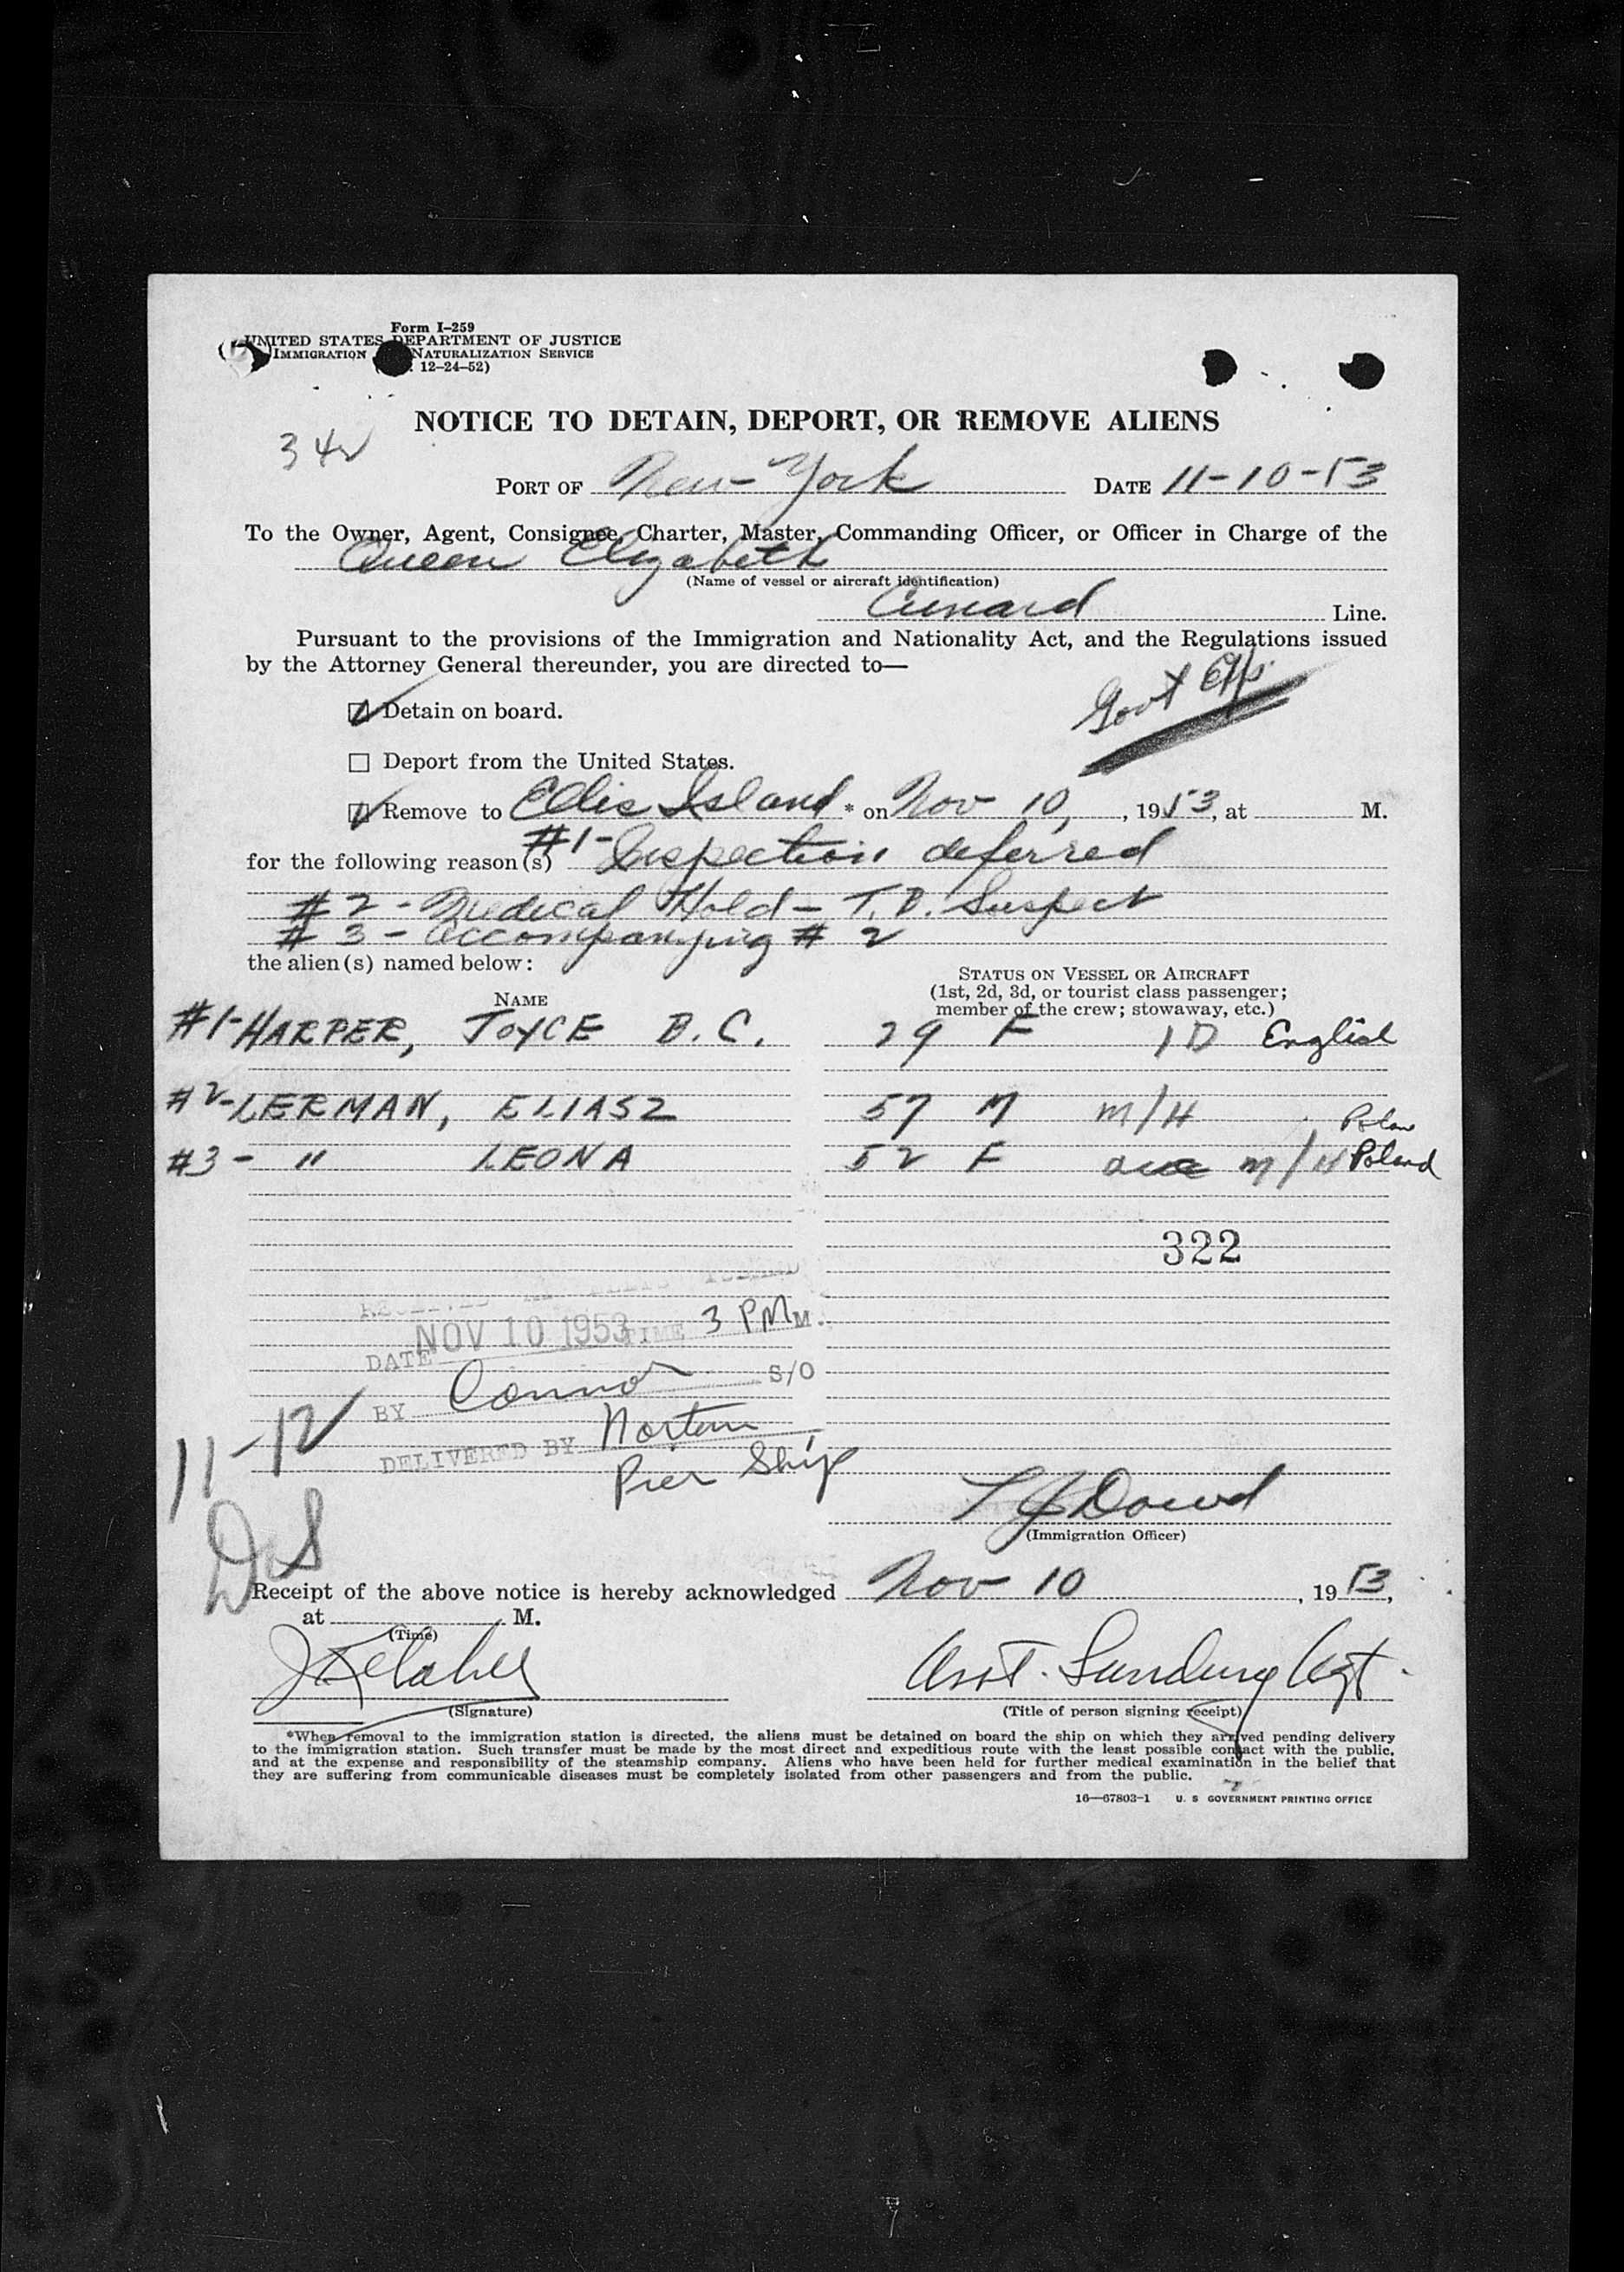 Form I-259
UNITED STATES DEPARTMENT OF JUSTICE
IMMIGRATION NATURALIZATION SERVICE
12-24-52)
NOTICE TO DETAIN, DEPORT, OR REMOVE ALIENS
PORT OF New York DATE 11-10-53
To the Owner, Agent, Consignee, Charter, Master, Commanding Officer, or Officer in Charge of the
Queen Elizabeth
(Name of vessel or aircraft identification)
Cunard Line.
Pursuant to the provisions of the Immigration and Nationality Act, and the Regulations issued
by the Attorney General thereunder, you are directed to—
Govt
Detain on board.
Deport from the United States.
Remove to Ellis Island * on Nov 10, , 1953, at M.
for the following reason(s) #1- Inspection deferred
#2 - Medical Hold - T.B. Suspect
#3 - accompanying #2
the alien(s) named below:
NAME
STATUS ON VESSEL OR AIRCRAFT
(1st, 2d, 3d, or tourist class passenger;
member of the crew; stowaway, etc.)
#1-HARPER, JOYCE B.C. 29 F ID English
#2-LERMAN, ELIASZ 57 M M/H
#3- " LEONA 52 F M/H Poland
322
RECEIVED AT ELLIS ISLAND
DATE NOV 10 1953 TIME 3 PM M.
BY Connor S/O
DELIVERED BY Norton
Pier Ship
11-12
DS
T J Dowd
(Immigration Officer)
Receipt of the above notice is hereby acknowledged Nov 10, 1953,
at M.
(Time)
Asst.
(Signature)
(Title of person signing receipt)
*When removal to the immigration station is directed, the aliens must be detained on board the ship on which they arrived pending delivery
to the immigration station. Such transfer must be made by the most direct and expeditious route with the least possible contact with the public,
and at the expense and responsibility of the steamship company. Aliens who have been held for further medical examination in the belief that
they are suffering from communicable diseases must be completely isolated from other passengers and from the public.
16—67803-1 U. S GOVERNMENT PRINTING OFFICE